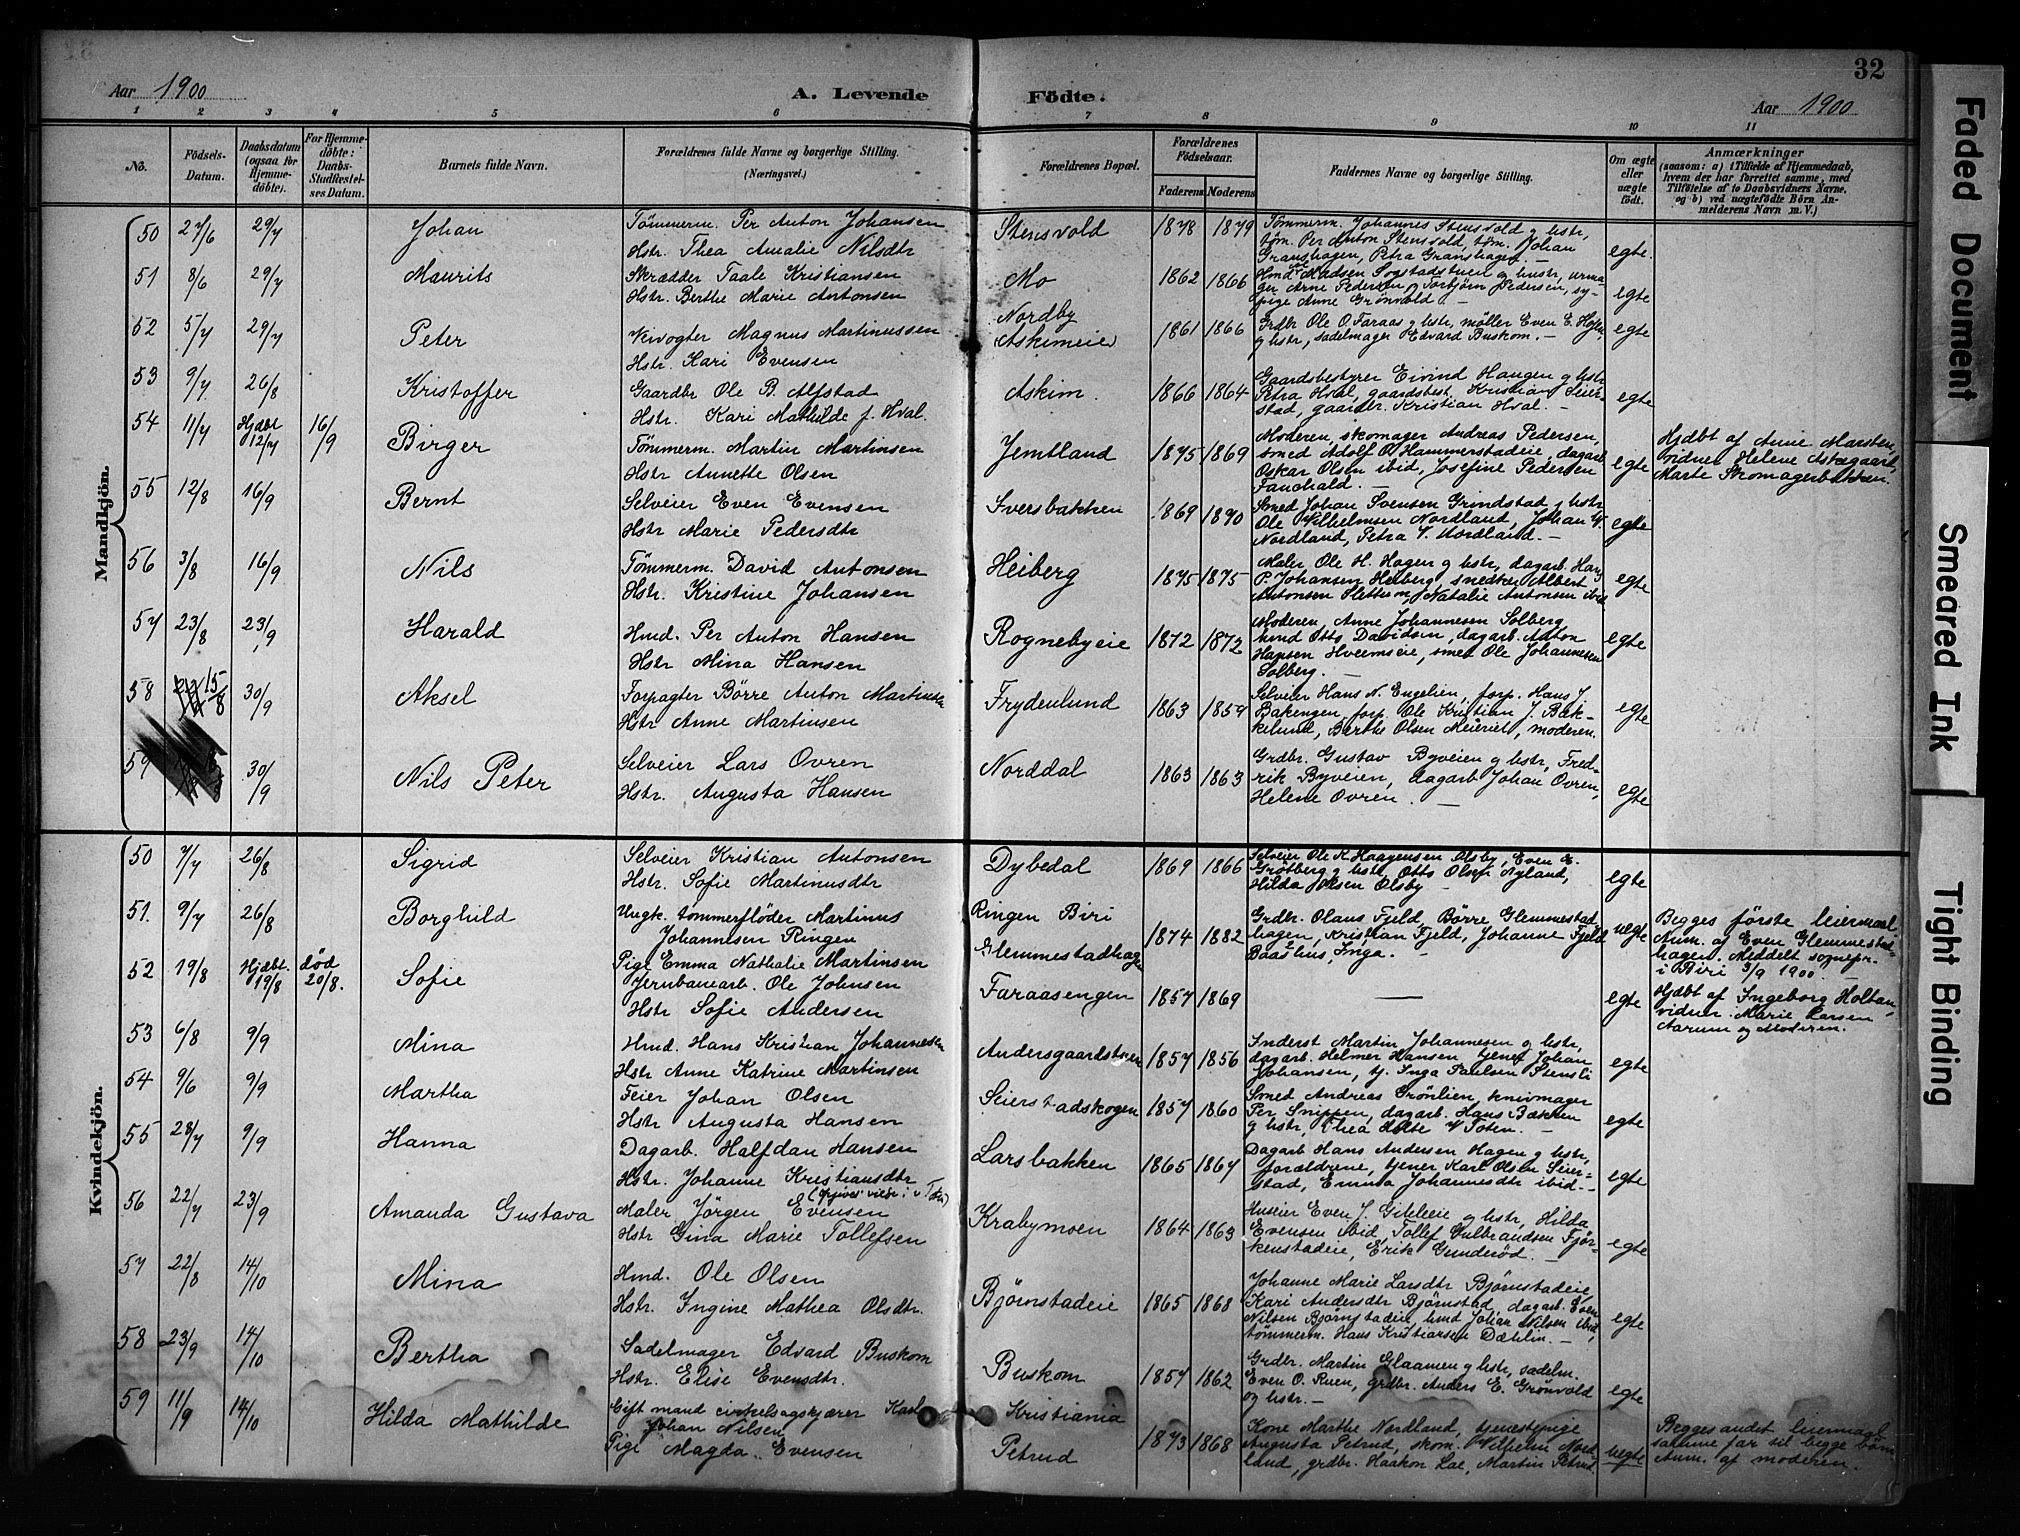 32
Aar 1900
A. Levende Födte.
Aar 1900
1 2 3 4 5 6 7 8 9 10 11
No.
Födsels-Datum.
Daabsdatum (ogsaa for Hjemmedöbte).
For Hjemmedöbte: Daabs-Stadfæstelses Datum.
Barnets fulde Navn.
Forældrenes fulde Navne og borgerlige Stilling. (Næringsvei.)
Forældrenes Bopæl.
Forældrenes Födselsaar.
Faderens Moderens
Faddernes Navne og borgerlige Stilling.
Om ægte eller uægte födt.
Anmærkninger
(saasom: a) i Tilfælde af Hjemmedaab, hvem der har forrettet samme, med Tilföielse af to Daabsvidners Navne, og b) ved uægtefödte Börn Anmelderens Navn m. V.)
Mandkjön.
50 27/6 29/7 Johan
Tömmerm. Per Anton Johansen
Hstr. Thea Amalie Nilsdtr
Stensvold 1878 1879
Tömmerm. Johannes Stensvold g hstr,
töm. Per Anton Stensvold, töm. Johan
Granshagen, Petra Granshagen. —
egte.
51 8/6 29/7 Maurits
Skrædder Taale Kristiansen
Hstr. Berthe Marie Antonsen
Mo 1862 1866
Hmd Madsen Sogstadstuen g hustr, urma-
ger Arne Pedersen, Torbjörn Pedersen, sy-
pige Anne Grönvold —
egte
52 5/7 29/7 Peter
Vivogter Magnus Martinussen
Hstr. Kari Evensen
Nordby
Askimeie 1861 1866
Grdbr Ole O. Faraas g hstr, möller Even E. Hofen
g hstr, sadelmager Edvard Buskom. —
egte
53 9/7 26/8 Kristoffer
Gaardbr Ole B. Alfstad
Hstr. Kari Mathilde f. Hval.
Askim. 1866 1864
Gaardsbestyrer Eivind Haugen g hstr
Petra Hval, gaardsbest. Kristian Seier-
stad, gaardbr. Kristian Hval. —
egte
54 11/7 Hjdbt 12/7 16/9 Birger
Tömmerm. Martin Martinsen
Hstr Annette Olsen
Jemtland 1875 1869
Moderen, skomager Andreas Pedersen,
smed Adolf O. Hammerstadeie, dagarb.
Oskar Olsen ibid, Josefine Pedersen
Fauchald. —
egte
Hjdbt af Anne Marsteen,
vidner Helene Askegaard,
Marte Skomagerbakken.
55 12/8 16/9 Bernt
Selveier Even Evensen
Hstr Marie Pedersdtr
Iversbakken 1869 1870
Smed Johan Svensen Grindstad g hstr
Ole Vilhelmsen Nordland, Johan V.
Nordland, Petra V. Nordland. —
egte
56 3/8 16/9 Nils
Tömmerm. David Antonsen
Hstr. Kristine Johansen
Heiberg 1875 1875
Maler Ole H. Hagen g hstr, dagarb. Hans
P. Johansen Heiberg, snedker Albert
Antonsen Slettum, Natalie Antonsen ibid
egte
57 23/8 23/9 Harald
Hmd. Per Anton Hansen
Hstr Mina Hansen
Rognebyeie 1872 1872
Moderen, Anne Johannesen Solberg
hmd Otto Davidsen, dagarb. Anton
Hansen Hveemseie, smed Ole Johannesen
Solberg. —
egte
58 15/8 30/9 Aksel
Forpagter Börre Anton Martinsen
Hstr Anne Martinsen
Frydenlund 1863 1859
Selveier Hans N. Engelien, forp. Hans J.
Bakengen, forp. Ole Kristian J. Bak-
kelund, Berthe Olsen Meieriet, moderen.
egte
59 30/9 Nils Peter
Selveier Lars Ovren
Hstr. Augusta Hansen
Norddal 1863 1863
Grdbr. Gustav Byveien g hstr, Fred-
rik Byveien, dagarb Johan Ovren,
Helene Ovren. —
egte
Kvindekjön.
50 7/7 26/8 Sigrid
Selveier Kristian Antonsen
Hstr. Sofie Martinusdtr
Dybedal 1869 1866
Selveier Ole K. Haagensen Olsby, Even E.
Grötberg g hstr, Otto Olsen Nyland,
Hilda Olsen Olsby —
egte
51. 9/7 26/8 Borghild
Ungk. tömmerflöder Martinus
Johannesen Ringen
Pige Emma Nathalie Martinsen
Ringen Biri
Glemmestadhagen
1874 1882
Grdbr. Olaus Fjeld, Börre Glemmestad
hagen, Kristian Fjeld, Johanne Fjeld
Baashus, Inga. —
uegte
Begges förste leiermaal
Anm. af Even Glemmestad-
hagen. Meddelt sognepr.
i Biri 3/9 1900. —
52 19/8 Hjdbt. 19/8 död 20/8. Sofie
Jernbanearb. Ole Johnsen
Hstr Sofie Andersen
Faraasengen 1857 1869
—
egte
Hjdbt af Ingeborg Holtan,
vidner. Marie Larsen
Aarum og Moderen.
53 6/8 9/9 Mina
Hmd. Hans Kristian Johannesen
Hstr Anne Katrine Martinsen
Andersgaardstuen 1857 1856
Inderst Martin Johannesen g hstr,
dagarb. Helmer Hansen, tjener Johan
Johansen, tj. Inga Paulsen Stensli
egte
54 9/6 9/9 Martha
Feier Johan Olsen
Hstr Augusta Hansen
Seierstadskogen 1857 1860
Smed Andreas Grönlien, knivmager
Per Snippen, dagarb. Hans Bakken
g hstr, Thea dotte V Toten. —
egte
55 28/7 9/9 Hanna
Dagarb. Halfdan Hansen
Hstr. Johanne Kristiansdtr
Larsbakken 1865 1867
Dagarb Hans Andersen Hagen g hstr,
forældrene, tjener Karl Olsen Seier-
stad, Emma Johannesdtr ibid. —
egte
56 22/7 23/9 Amanda Gustava
Maler Jörgen Evensen
Hstr Gina Marie Tollefsen
Krabymoen 1864 1863
Huseier Even J. Gileeie g hstr, Hilda
Evensen ibid, Tollef Gulbrandsen Fjör-
kenstadeie, Erik Gunderöd. —
egte
57 22/8 14/10 Mina
Hmd. Ole Olsen
Hstr. Ingine Mathea Olsdtr.
Björnstadeie 1865 1868
Johanne Marie Larsdtr Björnstadeie,
Kari Andersdtr Björnstad, dagarb. Even
Nilsen Björnstadeie hmd Johan Nilsen ibid,
tömmerm. Hans Kristiansen Dæhlin. —
egte
58 23/9 14/10 Bertha
Sadelmager Edvard Buskom
Hstr. Elise Evensdtr.
Buskom 1857 1862
Grdbr. Martin Glaamen g hstr, sadelm.
Even O. Ruen, grdbr. Anders E. Grönvold
og hstr. —
egte
59 11/9 14/10 Hilda Mathilde
Gift mand cirkelsagskjærer Karl
Johan Nilsen
Pige Magda Evensen
Kristiania
Petrud
1873 1868
Kone Marthe Nordland, tjenestepige
Augusta Petrud, skom. Vilhelm Nord-
land, grdbr. Haakon Lae, Martin Petrud
uegte
Begges andet leiermaal
samme far til begge börn
Anm. af moderen.
Faded Document
Smeared Ink
Tight Binding